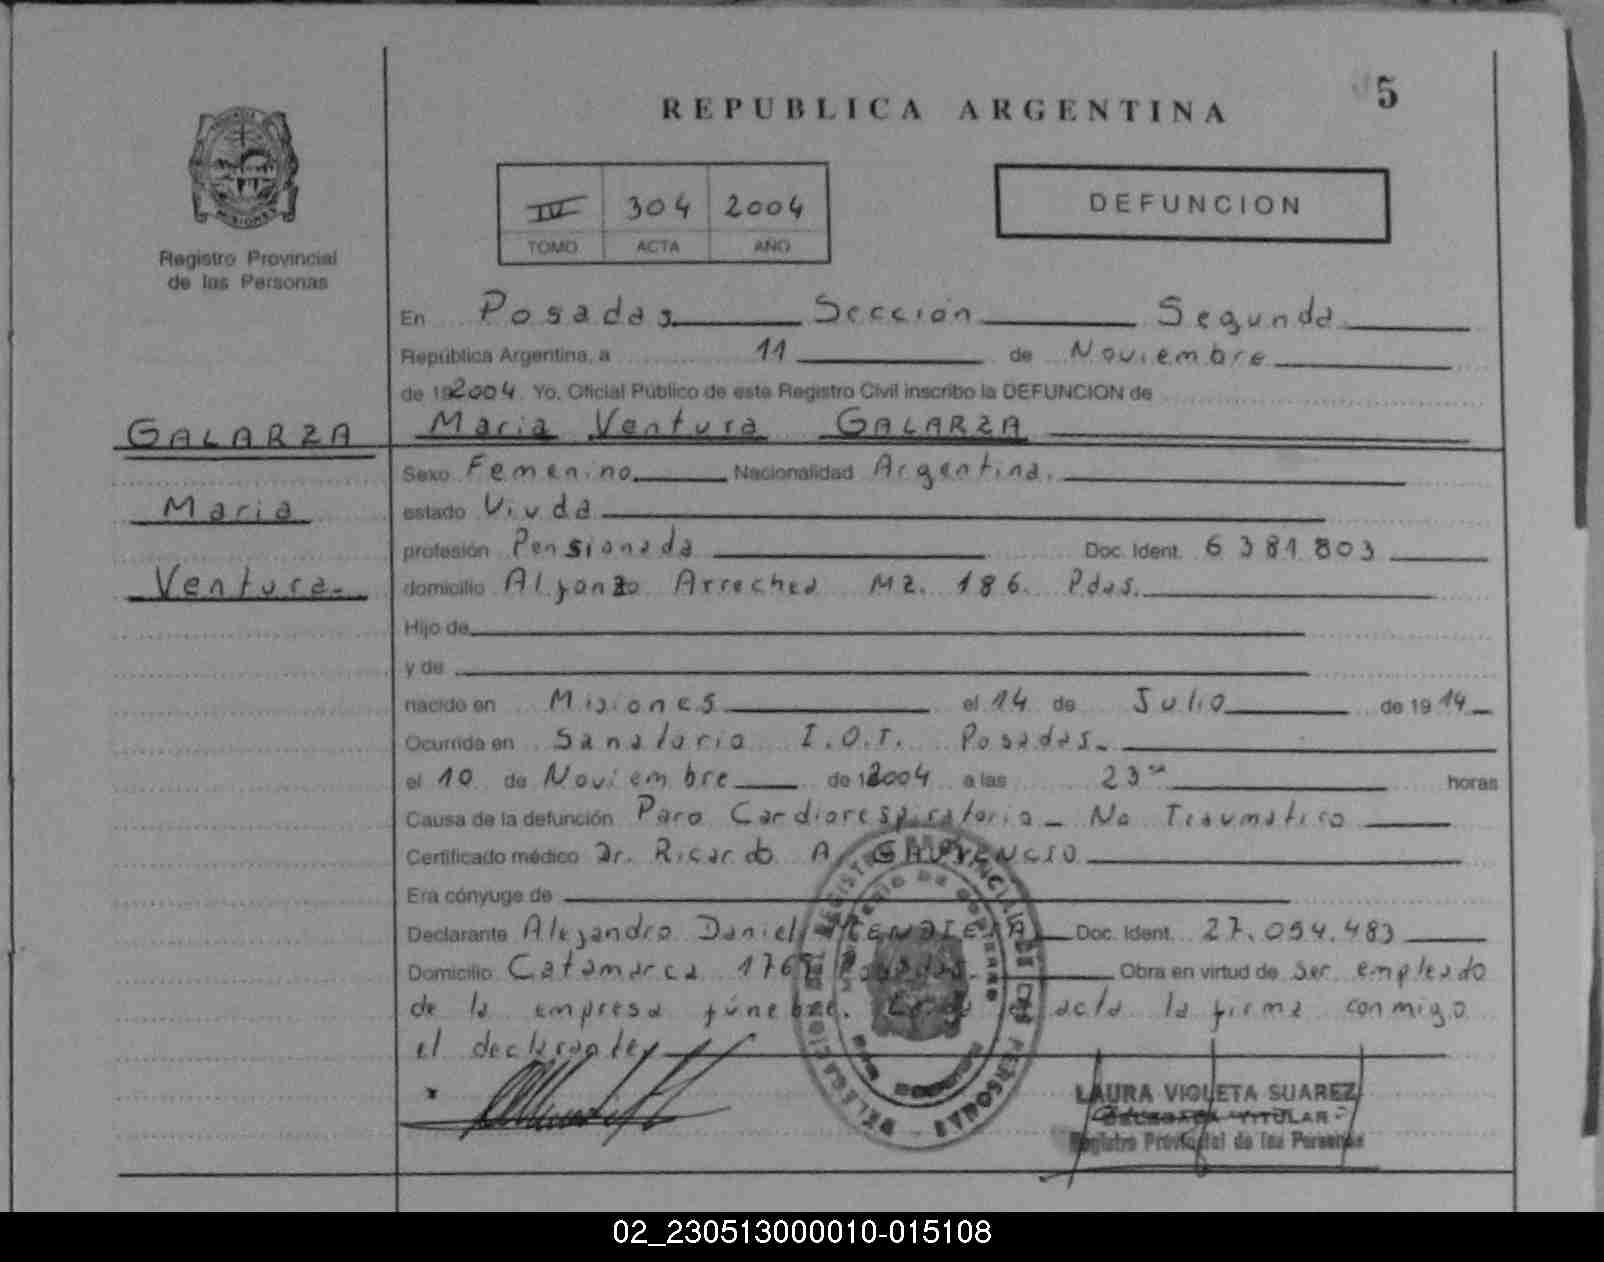 REPUBLICA ARGENTINA
5
Registro Provincial
de las Personas
IV 304 2004
TOMO ACTA AÑO
DEFUNCION
En Posadas Sección Segunda
República Argentina, a 11 de Noviembre
de 2004 Yo, Oficial Público de este Registro Civil inscribo la DEFUNCION de
GALARZA
Maria
Ventura.-
Maria Ventura GALARZA
Sexo Femenino Nacionalidad Argentina.
estado Viuda
profesión Pensionada Doc. Ident. 6381803
domicilio Alfonzo Arrechea MZ. 186. Pdas.
Hijo de
y de
nacido en Misiones el 14 de Julio de 1914
Ocurrida en Sanatorio I.O.T. Posadas.
el 10 de Noviembre de 2004 a las 23 horas
Causa de la defunción Paro Cardiorespiratorio - No Traumatico
Certificado médico Dr. Ricardo A.
Era cónyuge de
Declarante Alejandro Daniel Doc. Ident. 27.054.483
Domicilio Catamarca Posadas. Obra en virtud de ser empleado
de la empresa fúnebre. acta la firma conmigo
el declarante
LAURA VIOLETA SUAREZ
DELEGADA TITULAR
Registro Provincial de las Personas
02_230513000010-015108